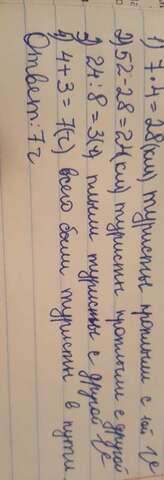 1) 7·4=28(км) туристы проплыли с
2) 52-28=24(км) туристы проплыли с другой
3) 24:8=3(ч) плыли туристы с другой
4) 4+3=7(ч) всего были туристы в пути
Ответ: 7 ч